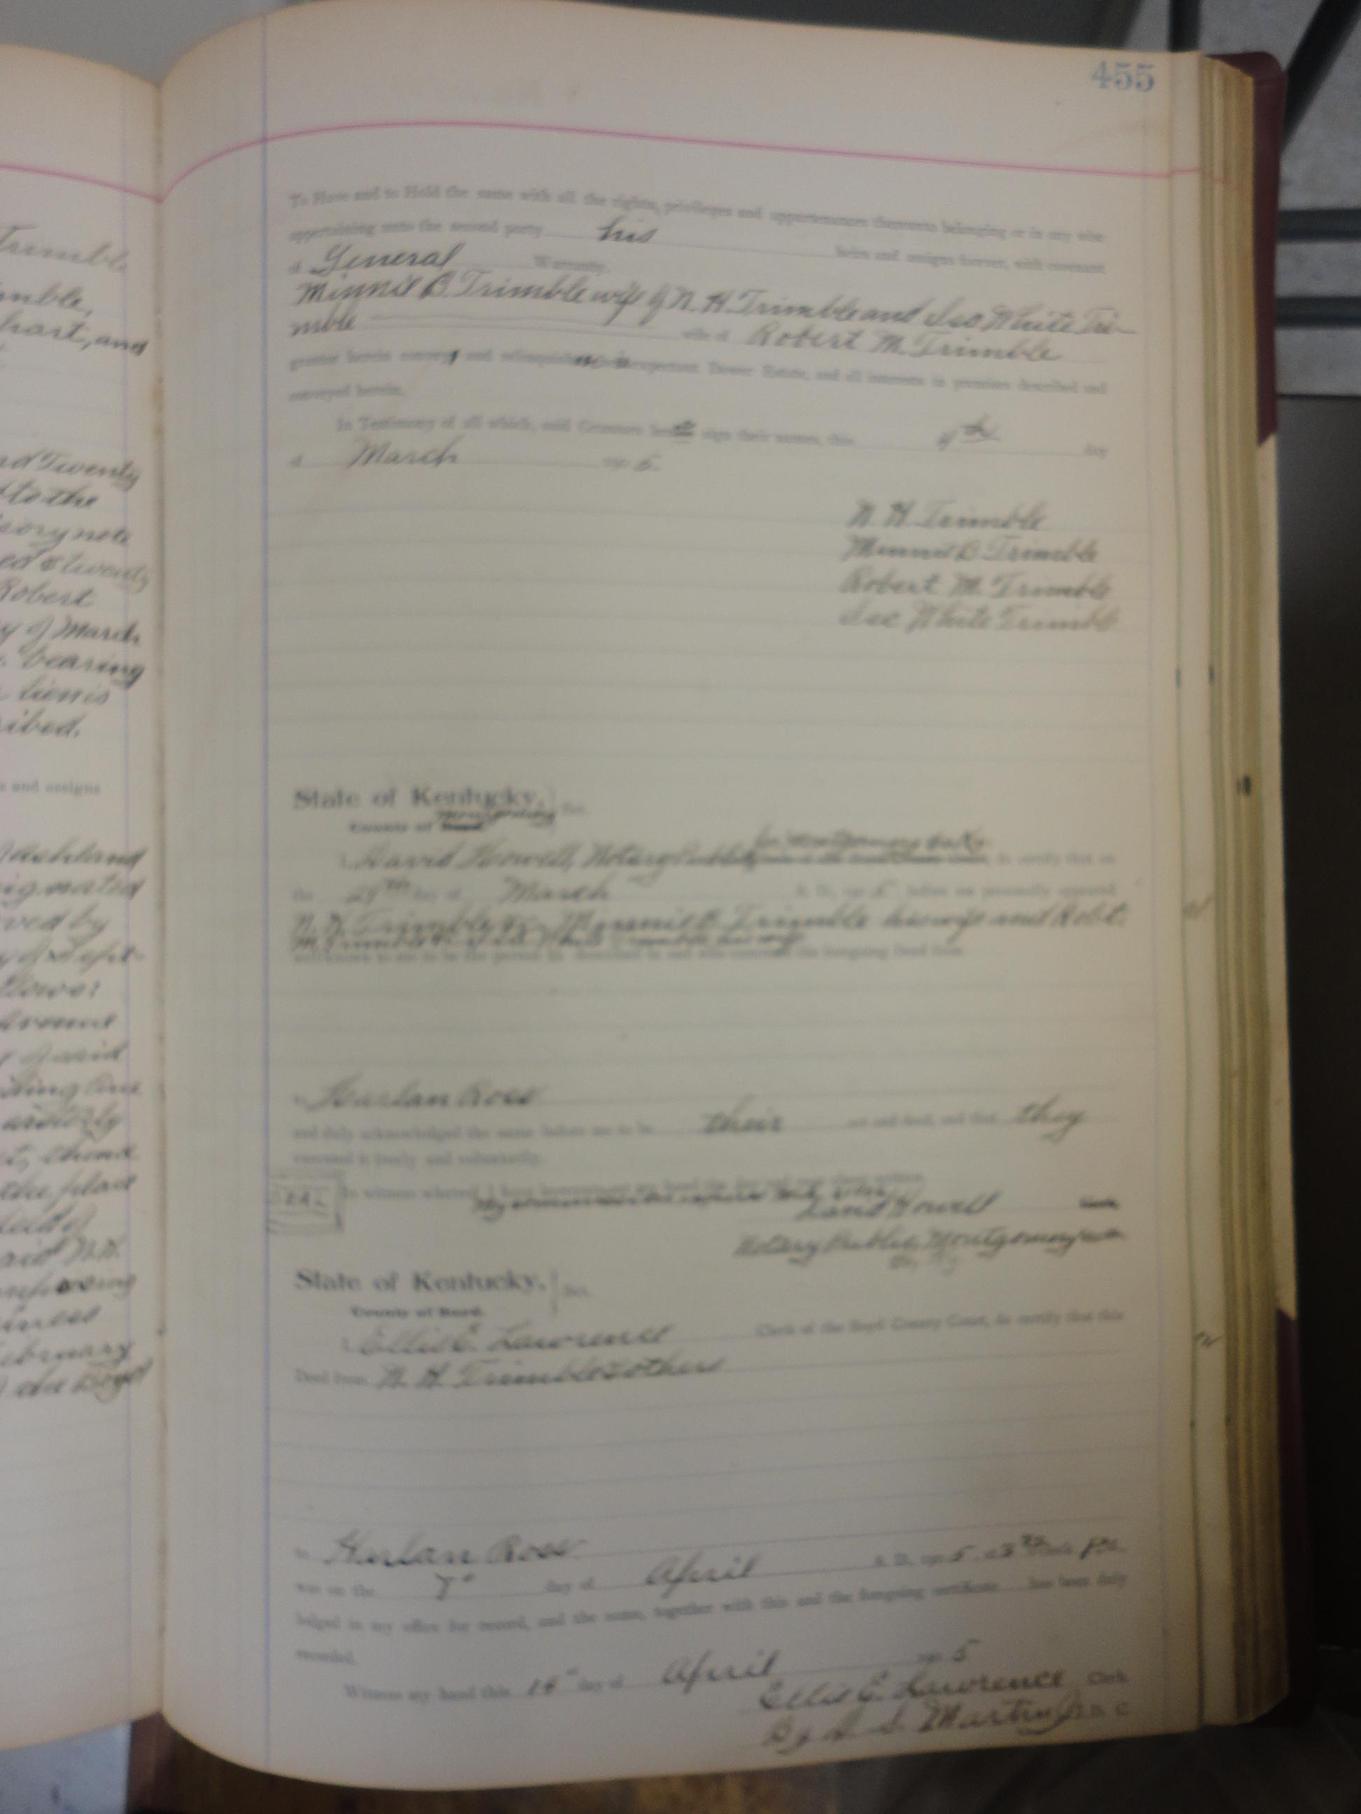 455
Trimble
mble,
hart, and
nd Twenty
to the
sory note
ed & twenty
Robert
y of March
bearing
lien is
ribed.
s and assigns
Ashland
signated
rved by
y of Sept-
llows:
Avenue
y of said
iding line
the place
said N.H.
February
To Have and to Hold the same with all the rights, privileges and appurtenances thereunto belonging or in any wise
appertaining unto the second party his heirs and assigns forever, with covenant
of General Warranty.
Minnie B. Trimble wife of N. H. Trimble and White Tri-
mble wife of Robert M. Trimble
grantor herein conveys and relinquishes respective Dower Estate, and all interests in premises described and
conveyed herein.
In Testimony of all which, said Grantors sign their names, this day
of March 5.
N. H. Trimble
Minnie B. Trimble
Robert M. Trimble
White Trimble
State of Kentucky, } Sct.
County of Boyd. Montgomery
I, David Howell, Notary Public for Montgomery do certify that on
the day of March A. D., before me personally appeared
N. H. Trimble & Minnie B. Trimble his wife and Robt.
M Trimble & White Trimble his wife
well known to me to be the person described in and who executed the foregoing Deed from
to Harlan Ross
and duly acknowledged the same before me to be their act and deed, and that they
executed it freely and voluntarily.
SEAL
In witness whereof, I have hereunto set my hand the day and year above written.
My commission expires
David Howell Clerk.
Notary Public, Montgomery
Co, Ky.
State of Kentucky, } Sct.
County of Boyd.
I Ellis E. Lawrence Clerk of the Boyd County Court, do certify that this
Deed from N. H. Trimble & others
to Harlan Ross
was on the 7" day of April A. D., 5
lodged in my office for record, and the same, together with this and the foregoing certificate has been duly
recorded.
Witness my hand this 15" day of April 5
Ellis E. Lawrence Clerk
By S. Martin Jr. D. C.